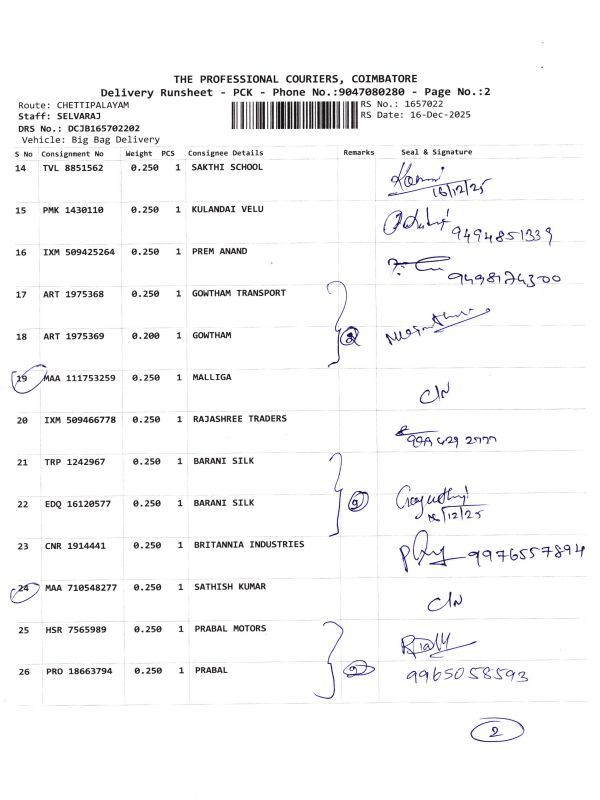 THE PROFESSIONAL COURIERS, COIMBATORE
Delivery Runsheet - PCK - Phone No.:9047080280 - Page No.:2
Route: CHETTIPALAYAM RS No.: 1657022
Staff: SELVARAJ RS Date: 16-Dec-2025
DRS No.: DCJB165702202
Vehicle: Big Bag Delivery
S No Consignment No Weight PCS Consignee Details Remarks Seal & Signature
14 TVL 8851562 0.250 1 SAKTHI SCHOOL
16/12/25
15 PMK 1430110 0.250 1 KULANDAI VELU
9494851339
16 IXM 509425264 0.250 1 PREM ANAND
9498174300
17 ART 1975368 0.250 1 GOWTHAM TRANSPORT
18 ART 1975369 0.200 1 GOWTHAM 2
19 MAA 111753259 0.250 1 MALLIGA
C/N
20 IXM 509466778 0.250 1 RAJASHREE TRADERS
21 TRP 1242967 0.250 1 BARANI SILK
22 EDQ 16120577 0.250 1 BARANI SILK
16/12/25
23 CNR 1914441 0.250 1 BRITANNIA INDUSTRIES
9976557894
24 MAA 710548277 0.250 1 SATHISH KUMAR
C/N
25 HSR 7565989 0.250 1 PRABAL MOTORS
26 PRO 18663794 0.250 1 PRABAL 2 9965058593
2